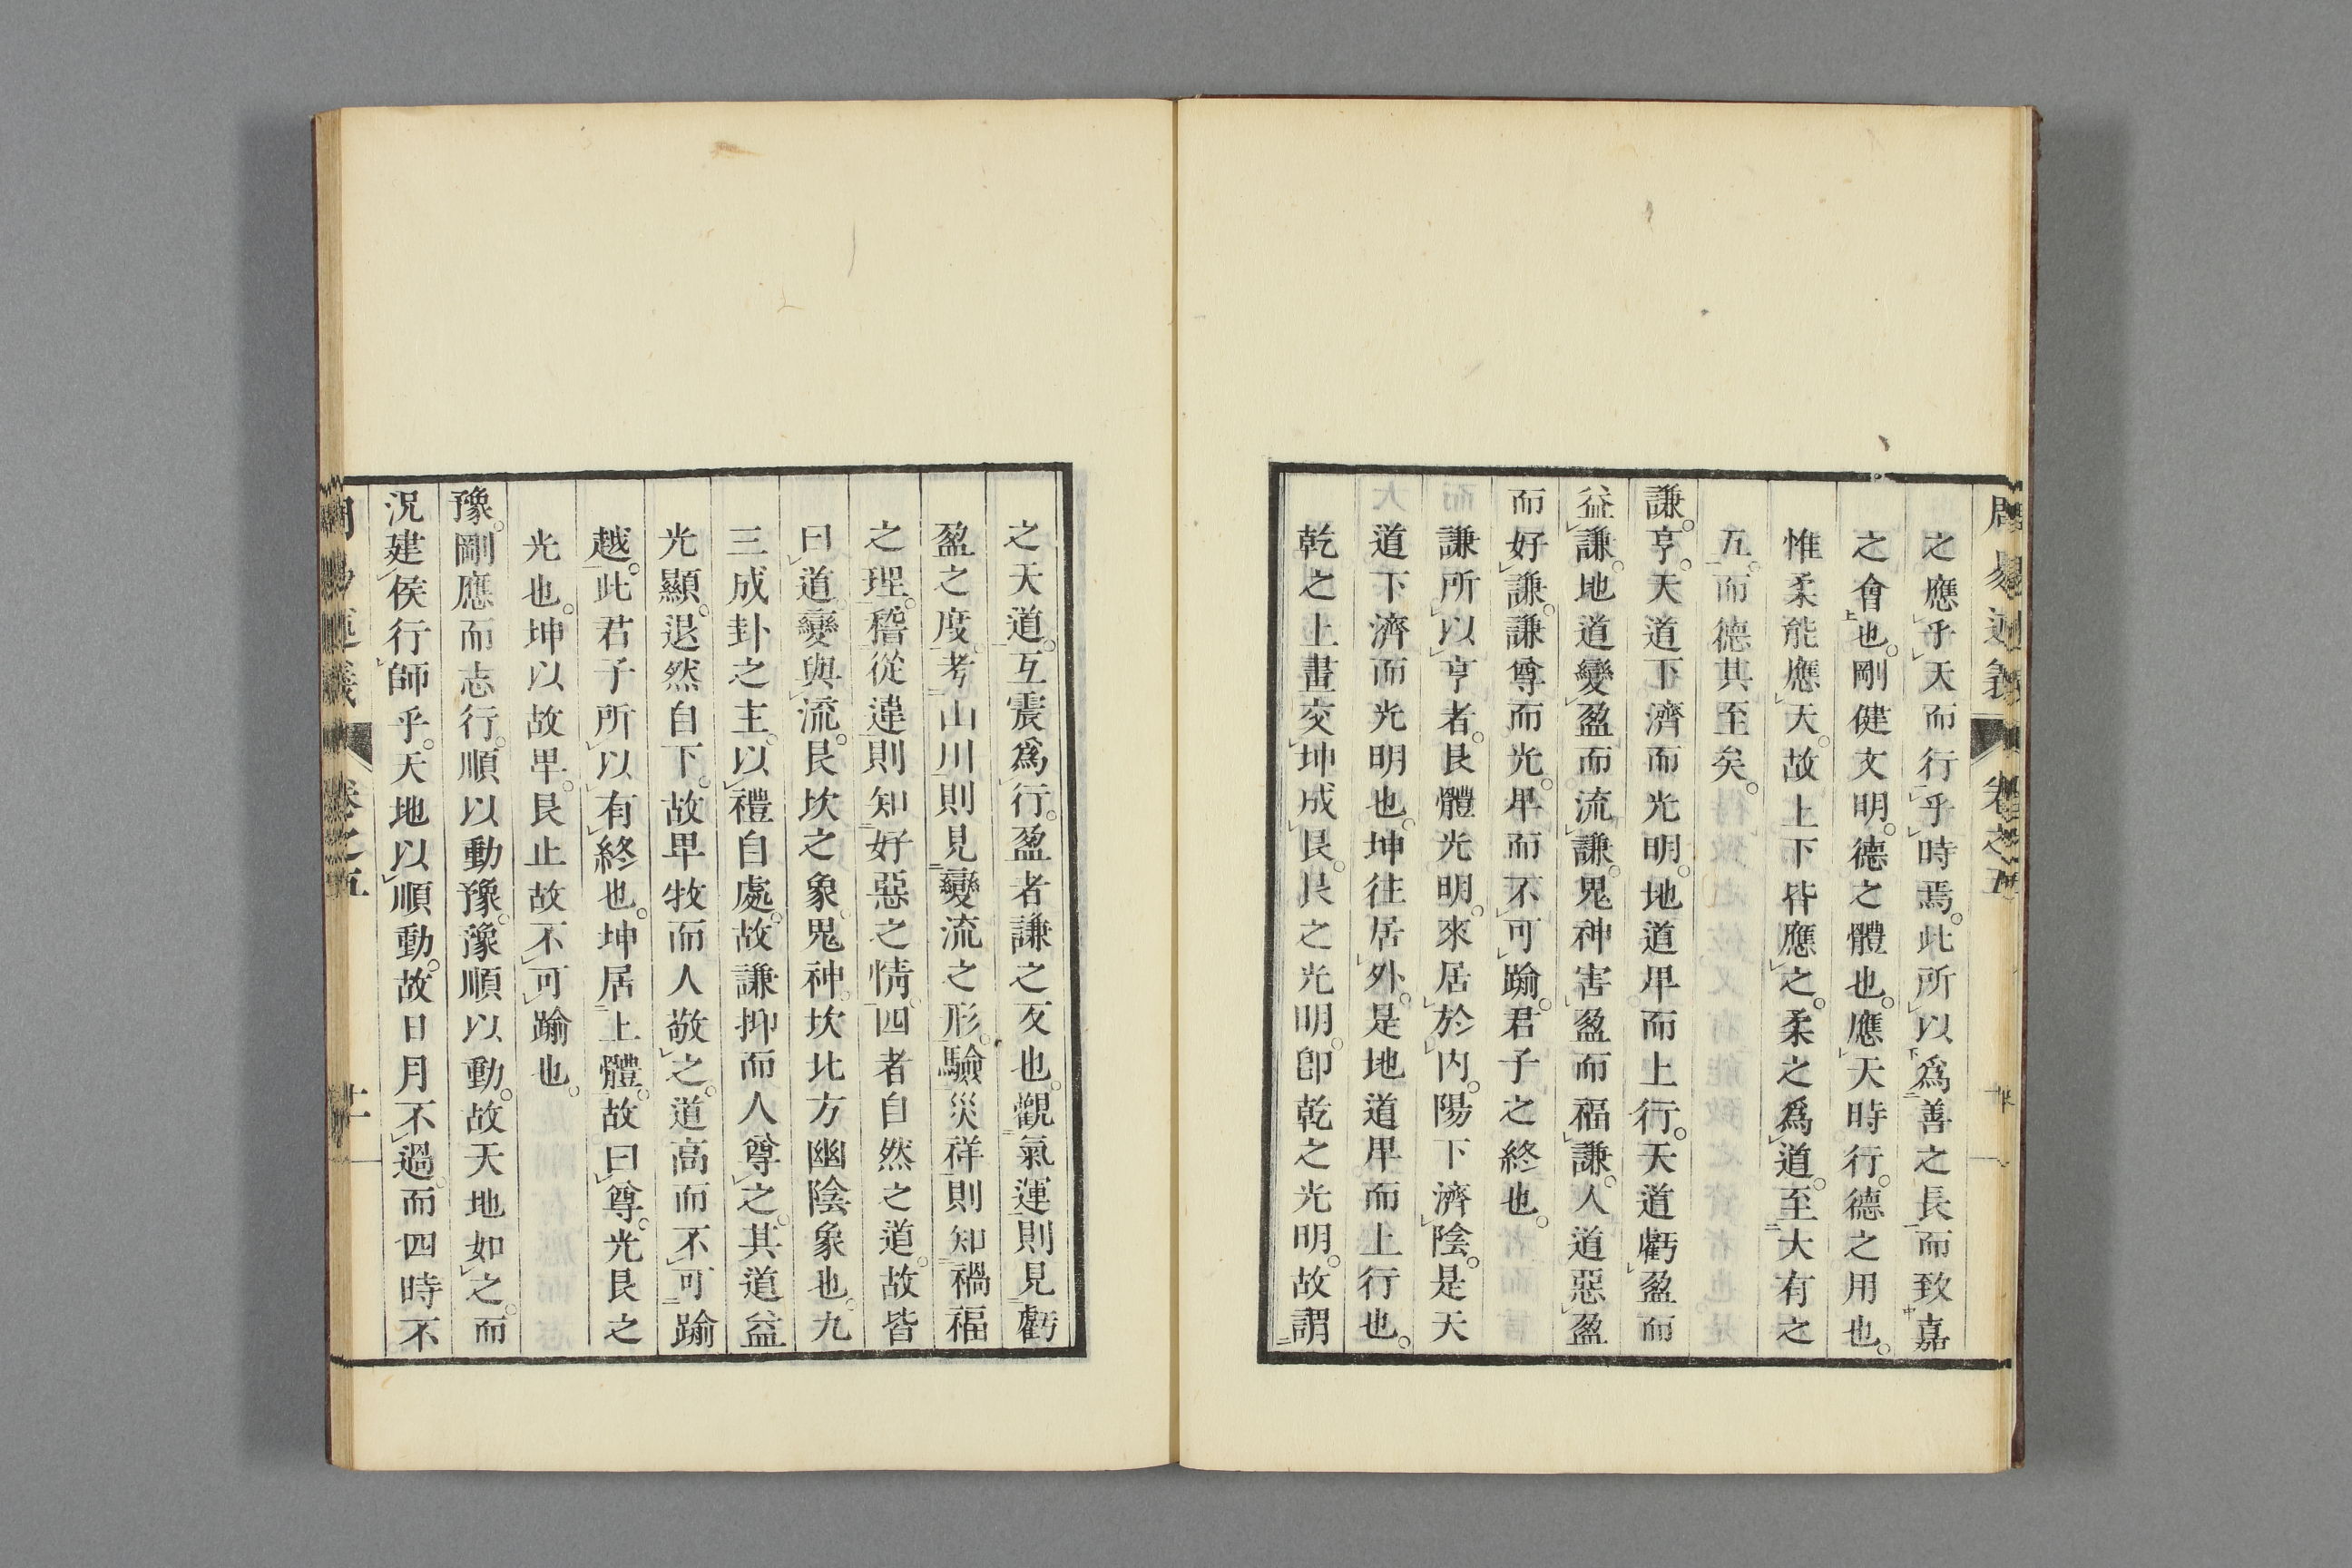 之應乎天而行乎時焉。此所以爲善之長而致嘉
之會也。剛健文明。德之體也。應天時行。德之用也。
惟柔能應天。故上下皆應之。柔之爲道。至大有之
五。而德其至矣。
謙。亨。天道下濟而光明。地道卑而上行。天道虧盈而
益謙。地道變盈而流謙。鬼神害盈而福謙。人道惡盈
而好謙。謙尊而光。卑而不可踰。君子之終也。
謙所以亨者。艮體光明。來居於內。陽下濟陰。是天
道下濟而光明也。坤往居外。是地道卑而上行也。
乾之上畫交坤成艮。艮之光明。卽乾之光明。故謂
之天道。互震爲行。盈者謙之反也。觀氣運則見虧
盈之度。考山川則見變流之形。驗災祥則知禍福
之理。稽從違則知好惡之情。四者自然之道。故皆
曰道。變與流。艮坎之象。鬼神。坎北方幽陰象也。九
三成卦之主。以禮自處。故謙抑而人尊之。其道益
光顯。退然自下。故卑牧而人敬之。道高而不可踰
越。此君子所以有終也。坤居上體。故曰尊。光艮之
光也。坤以故卑。艮止故不可踰也。
豫。剛應而志行。順以動豫。豫順以動。故天地如之。而
況建侯行師乎。天地以順動。故日月不過。而四時不
卷之五